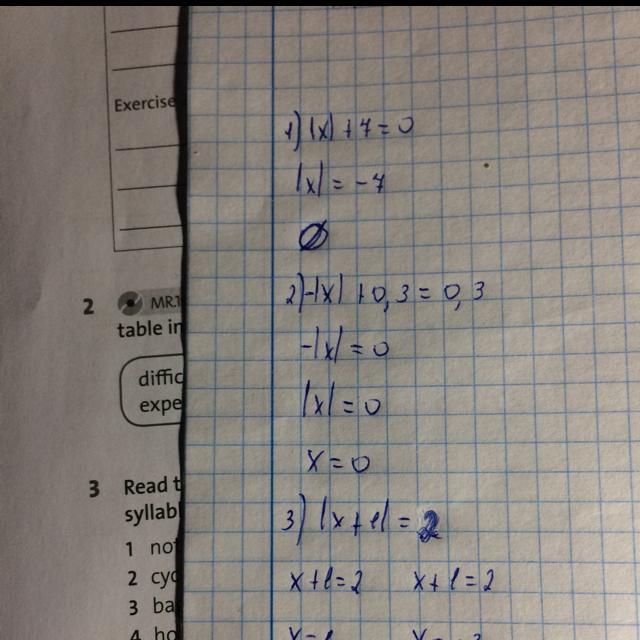 Exercise
1) |x| + 7 = 0
|x| = -7
∅
2) -|x| + 0,3 = 0,3
2 MR.1
table in
-|x| = 0
diffic
expe
|x| = 0
x = 0
3 Read t
syllab
3) |x+1| = 2
1 not
2 cyc
x+1=2 x+1=2
3 ba
4 ho